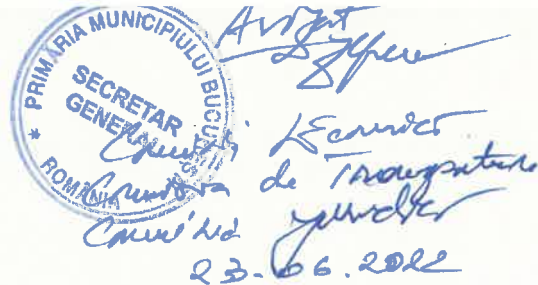 * PRIMĂRIA MUNICIPIULUI BUCU
ROMÂNIA
SECRETAR
GENERAL
Avizat
Comisia Economică
Comisia de Transporturi
Comisia Juridică
23.06.2022